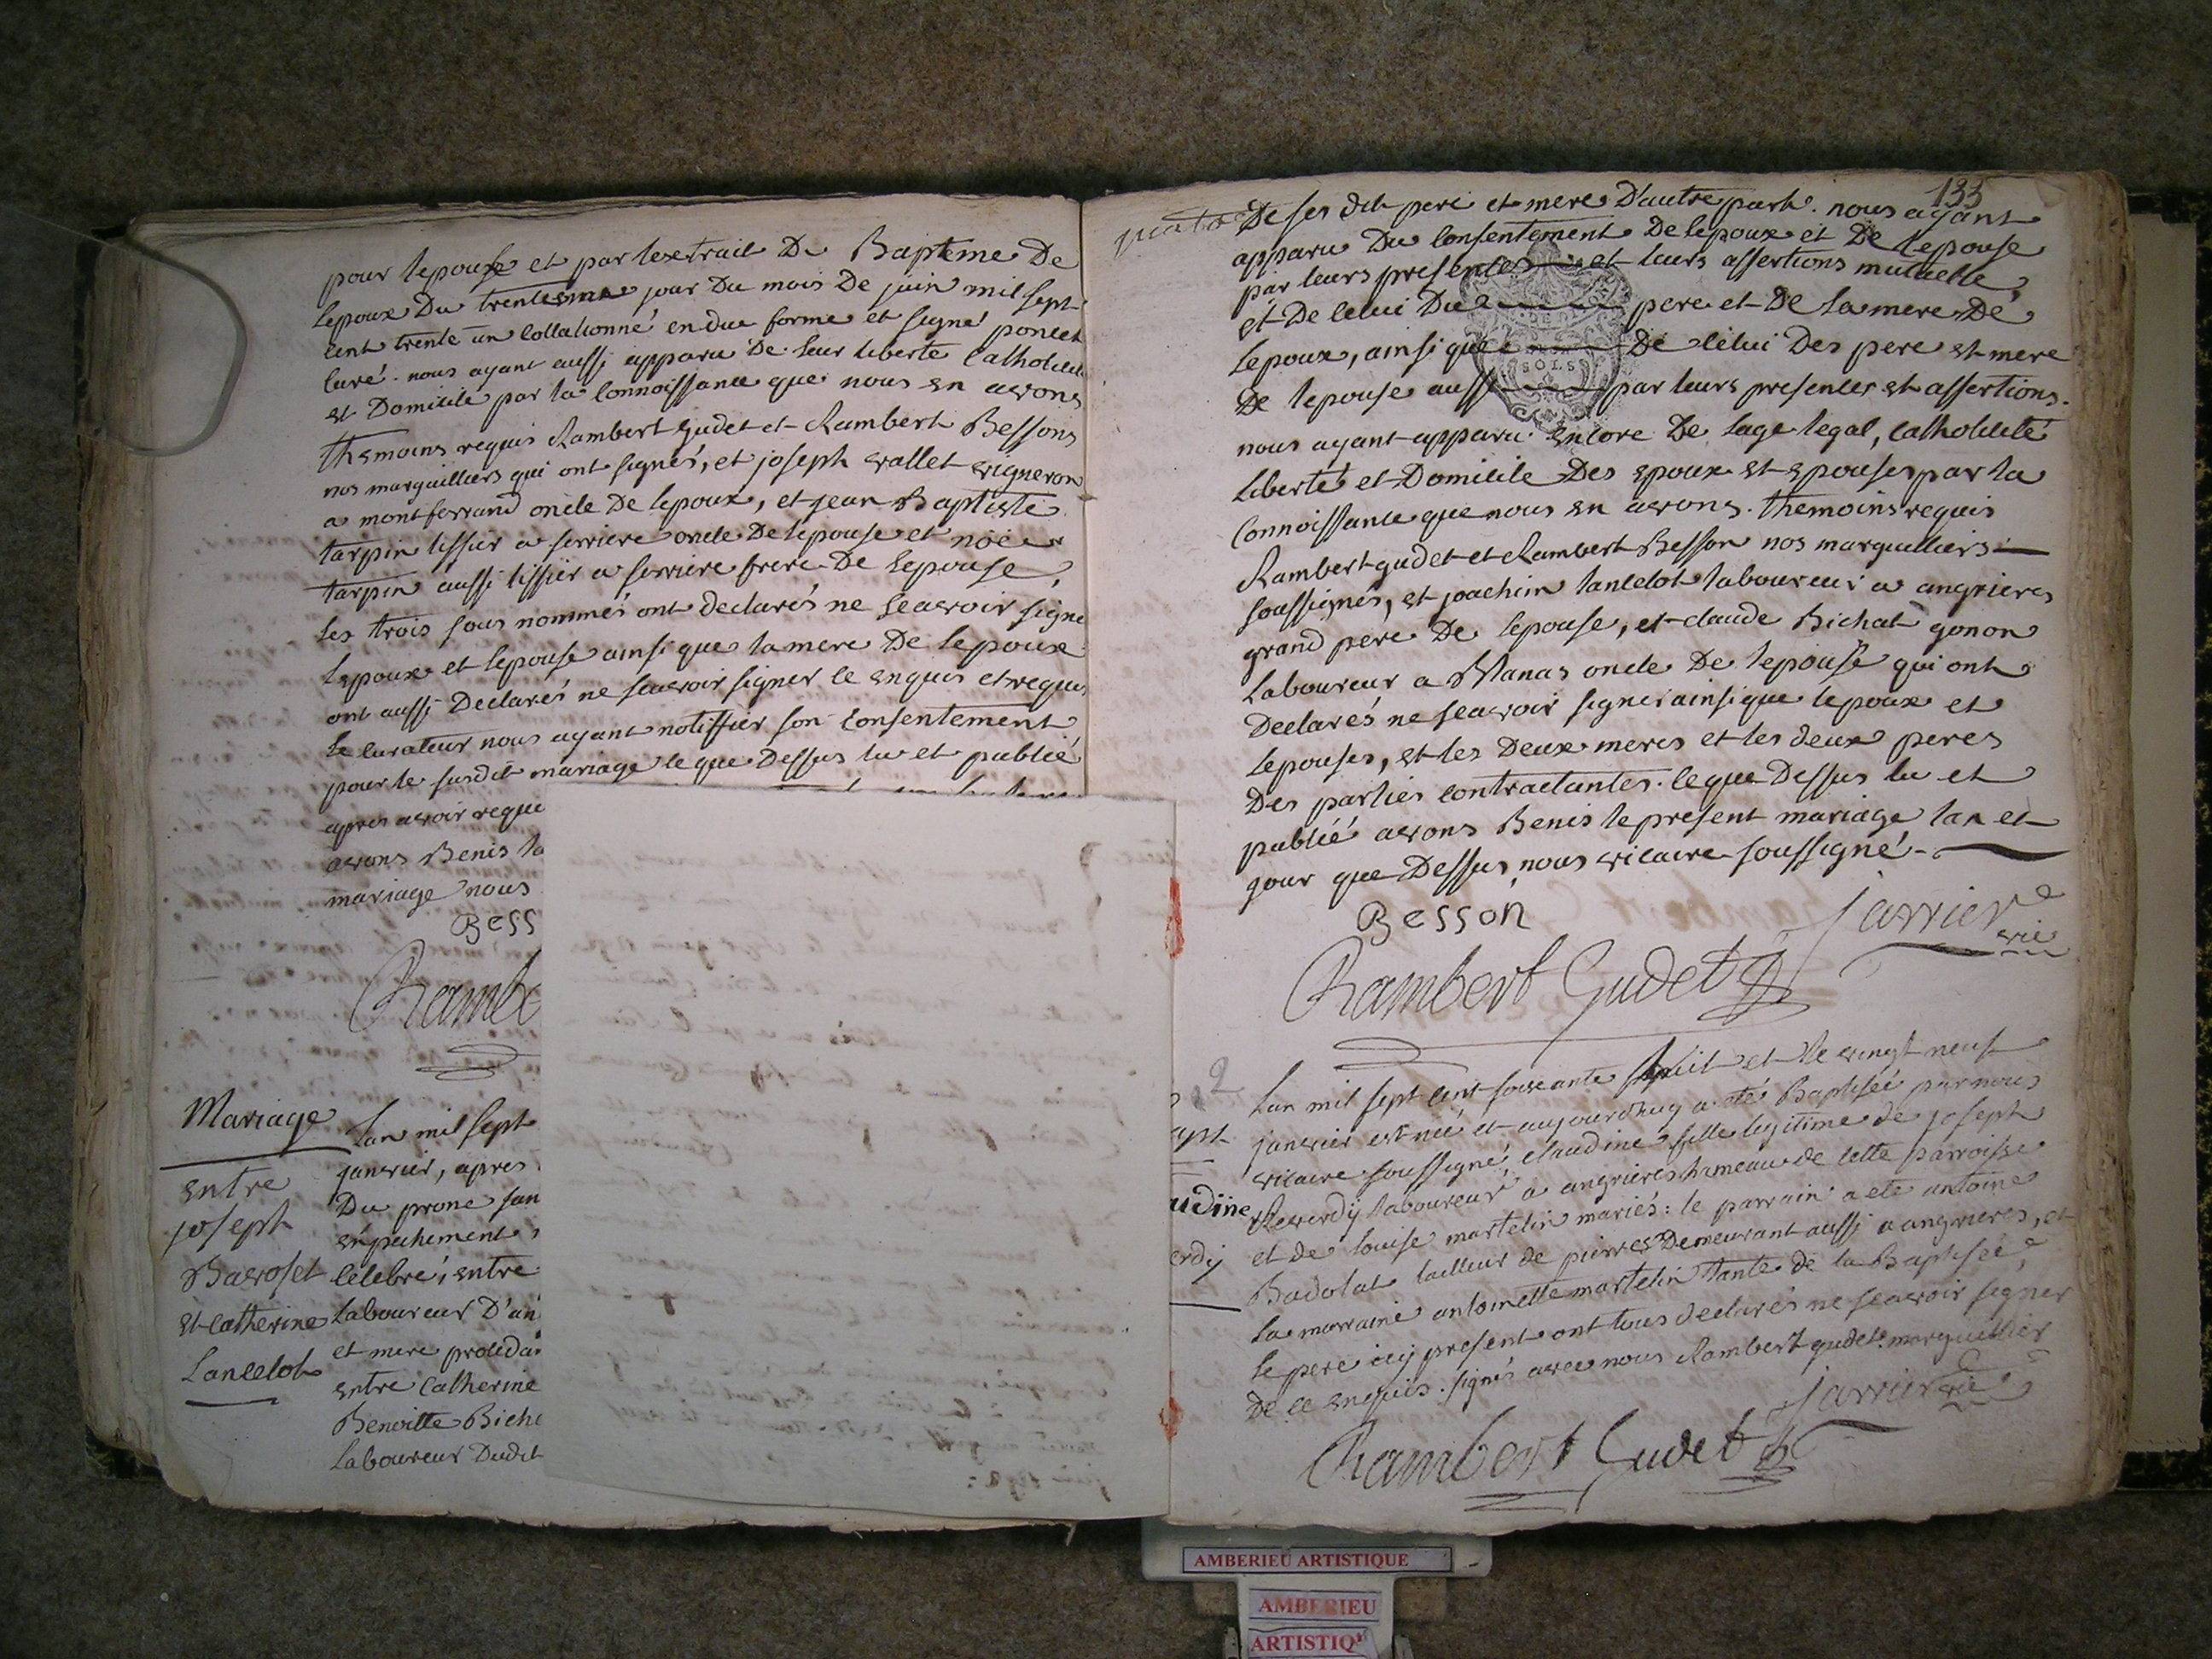 pour lepouse et par lextrait De Bapteme De
lepoux Du trentesme jour Du mois De juin mil sept
cent trente un collationné en due forme et signé poncet
curé. nous ayant aussi apparu De leur liberté Catholicité
et Domicile par la connoissance que nous en avons
themoins requis Rambert Gudet et Rambert Bessons
nos marguilliers qui ont signés, et joseph vallet vigneron
a montferrand oncle De lepoux, et jean Baptiste
tarpin tissier a serriere oncle De lepouse et noè
tarpin aussi tissier a serriere frere De lepouse,
les trois sous nommés ont declarés ne sçavoir signe
lepoux et lepouse ainsi que la mere De lepoux
ont aussi Declarés ne sçavoir signer ce enquis et requis
le curateur nous ayant notiffier son consentement
pour le susdit mariage ce que Dessus lu et publié
apres avoir reque
avons Benis la
mariage nous
Bess
Rambe
Mariage
entre
joseph
Bavoset
et Catherine
Lancelot
Lan mil sept
janvier, apres
Du prone san
enpechement
celebré, entre
laboureur D'an
et mere proceda
entre Catherine
Benoitte Biche
laboureur Dudit
133
De ses dit pere et mere D'autre part. nous ayant
apparu Du consentement De lepoux et De lepouse
par leurs presences et leurs assertions mutuelle,
et De celui Du pere et De la mere De
lepoux, ainsi que De celui Des pere et mere
De lepouse aussi par leurs presences et assertions.
nous ayant apparu encore De lage legal, catholicité
liberté et Domicile Des epoux et epouses par la
connoissance que nous en avons. themoins requis
Rambert gudet et Rambert Besson nos marguilliers
soussignés, et joachim lancelot laboureur a angrieres
grand pere De lepouse, et claude Bichat gonon
laboureur a Manas oncle De lepouse qui ont
Declarés ne sçavoir signer ainsi que lepoux et
lepouses, et les Deux meres et les deux peres
Des parties contractantes. ce que Dessus lu et
publié avons Benis le present mariage lan et
jour que Dessus, nous vicaire soussigné.
Besson
jarrier vic
Rambert Gudet
2
apt
udine
erdy
Lan mil sept cent soixante huit et le vingt neuf
janvier est née et aujourdhuy a été Baptisée par nous
vicaire soussigné, claudine fille legitime de joseph
Reverdy laboureur a angrieres hameau de cette parroisse
et de louise martelin mariés: le parrain a eté antoine
Badolat tailleur de pierres Demeurant aussi a angrieres, et
la marraine antoinette martelin tante de la Baptisée,
le pere icy present ont tous declarés ne sçavoir signer
De ce enquis. signés avec nous Rambert gudet marguillier
jarrier vic
Rambert Gudet
AMBERIEU ARTISTIQUE
AMBERIEU
ARTISTIQ